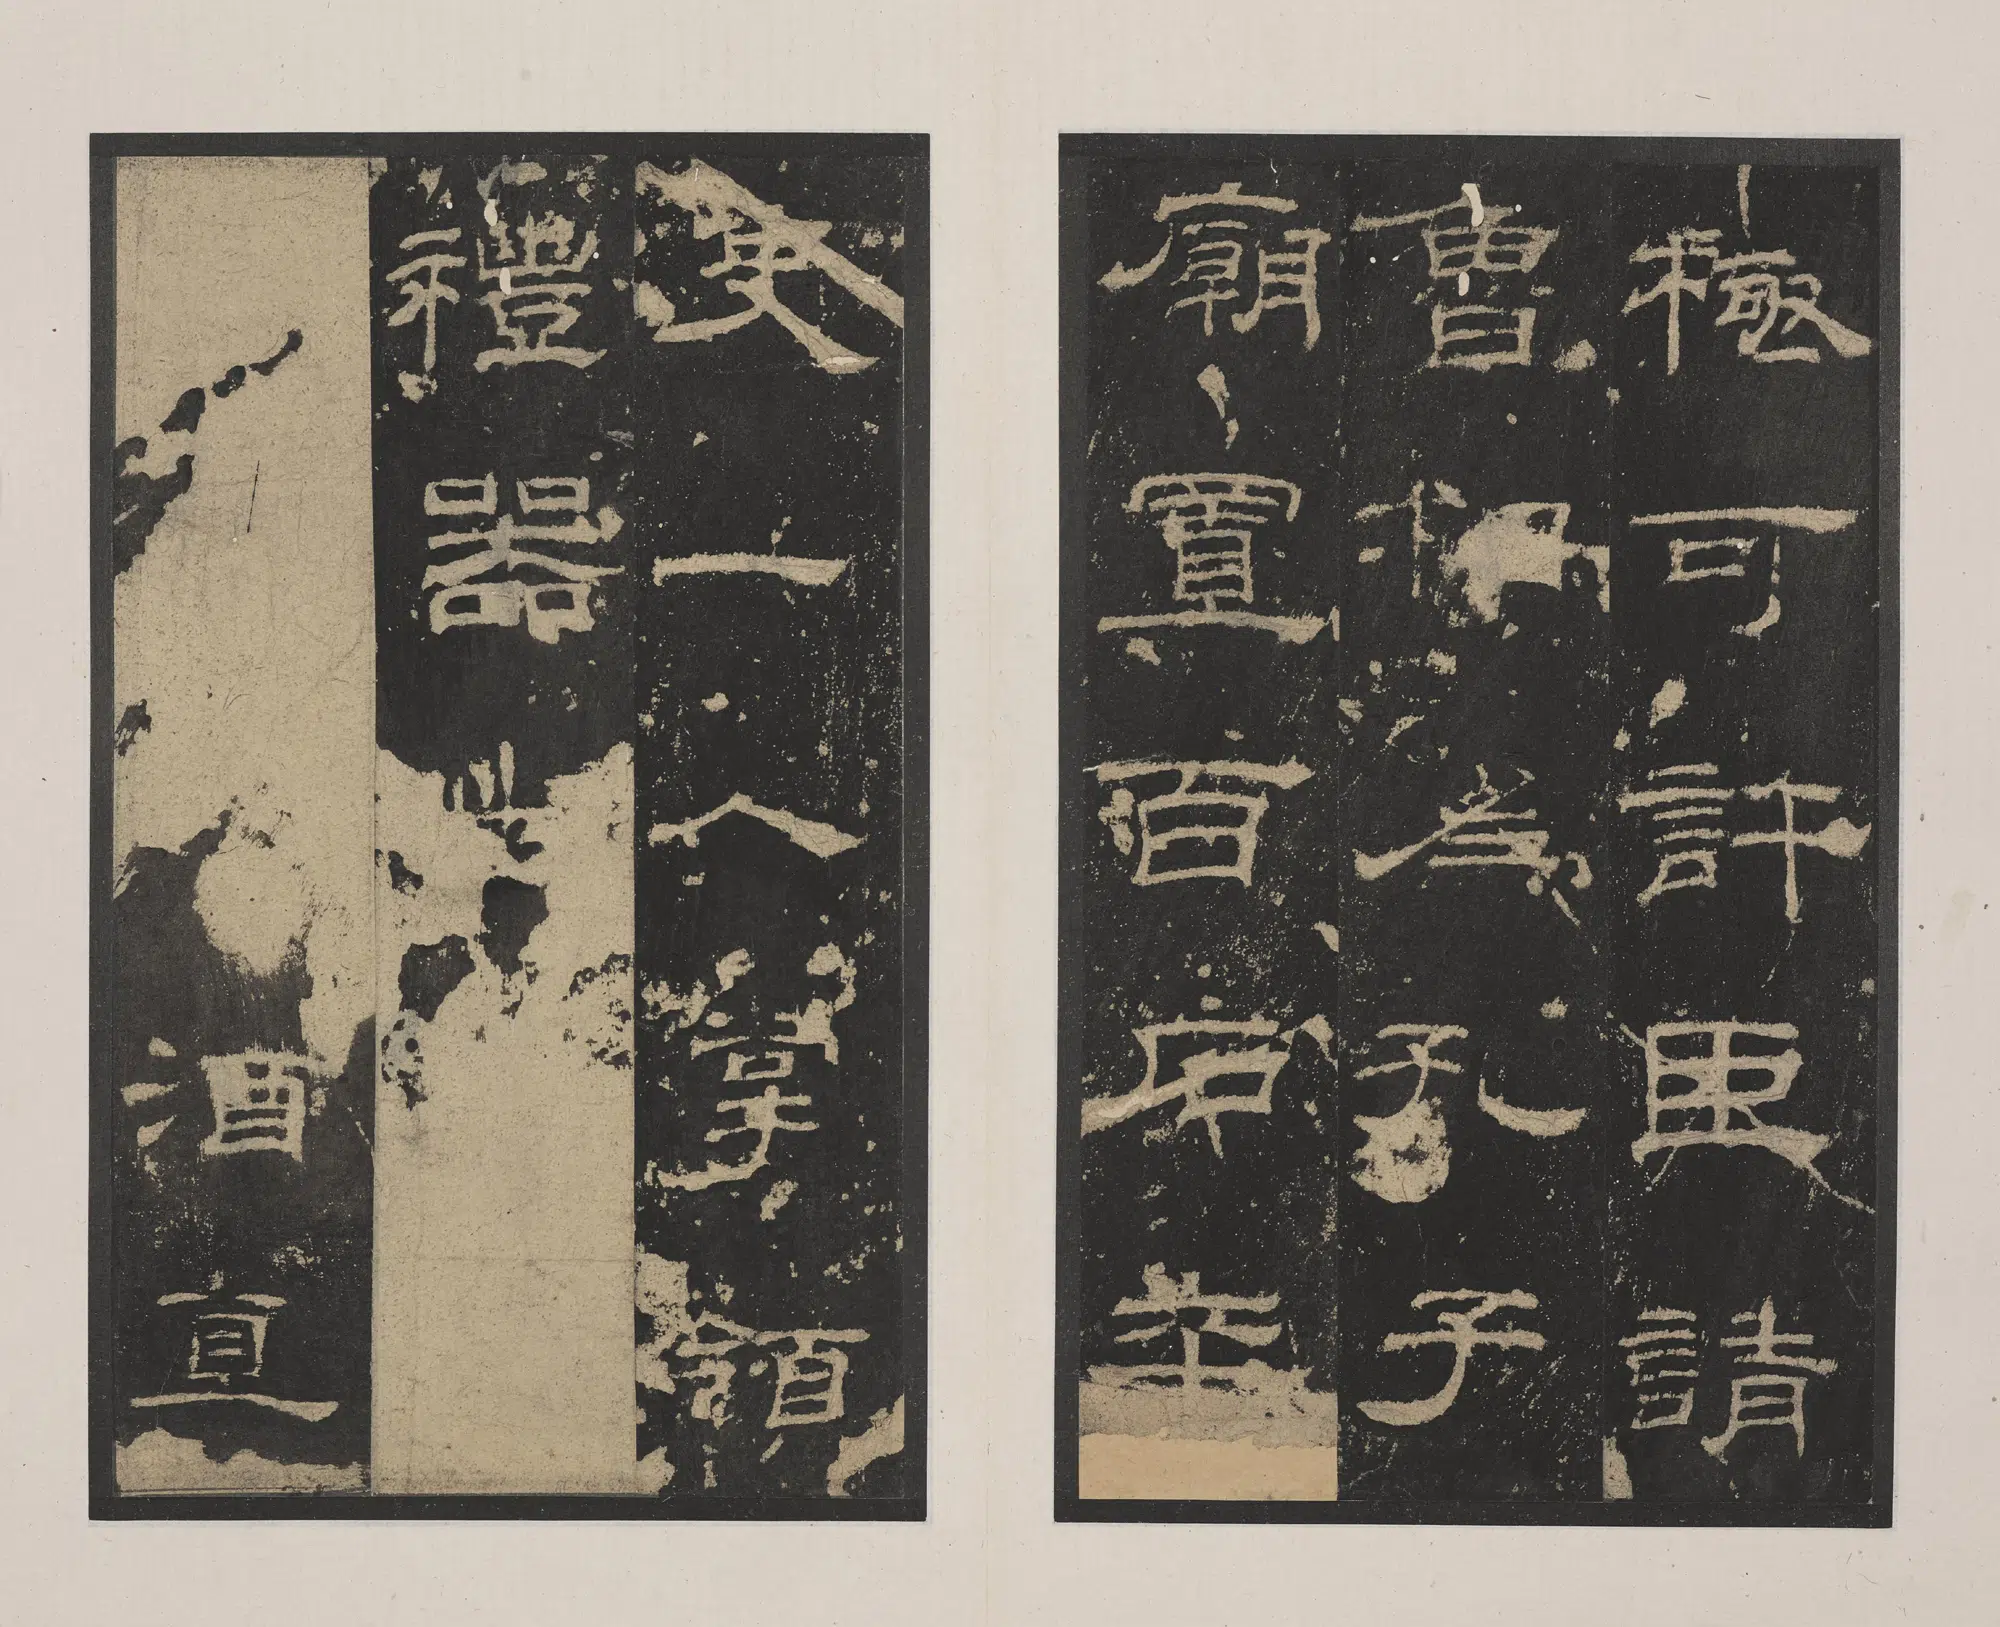 極可許臣請
魯相為孔子
廟置百石卒
史一人掌領
禮器出
酒直